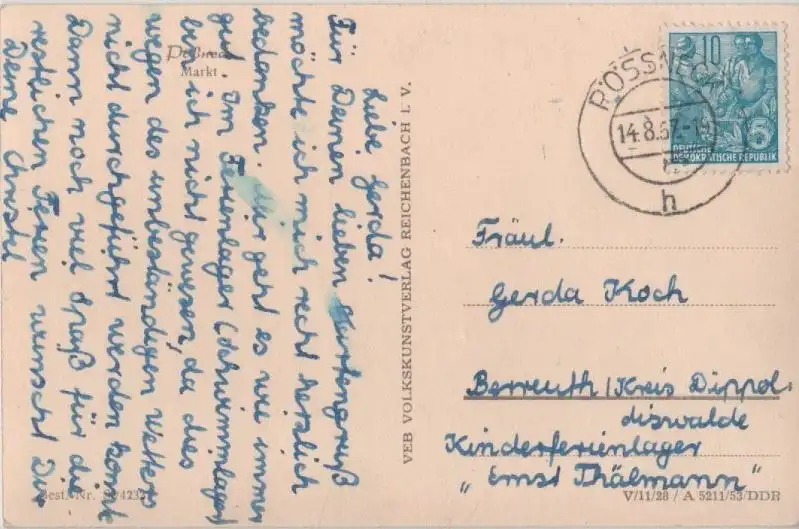 Liebe Gerda!
Für Deinen lieben Kartengruß
möchte ich mich recht herzlich
bedanken. Mir geht es wie immer
gut. Im Ferienlager (Schwimmlager)
bin ich nicht gewesen, da dies
wegen des unbeständigen Wetters
nicht durchgeführt werden konnte
Dann noch viel Spaß für die
restlichen Ferien wünscht Dir
Deine Christel
Pößneck
Markt
Best. Nr.
VEB VOLKSKUNSTVERLAG REICHENBACH I. V.
10
DEUTSCHE
DEMOKRATISCHE REPUBLIK
RÖSSNECK
14.8.57.-19
h
Fräul.
Gerda Koch
Berreuth / Kreis Dippol-
diswalde
Kinderferienlager
„Ernst Thälmann"
V/11/28 / A 5211/53/DDR